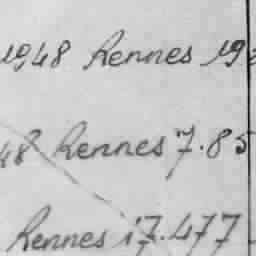 1948 Rennes 19
48 Rennes 7.85
Rennes 17.477